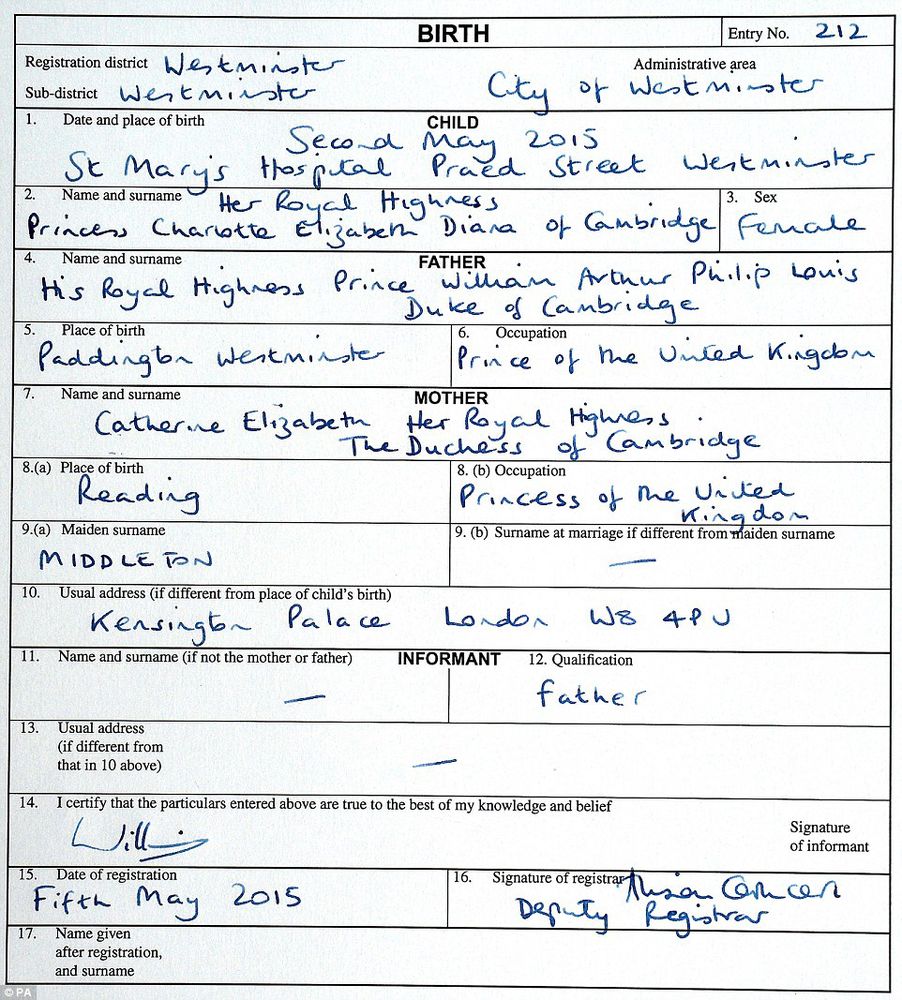 BIRTH
Entry No. 212
Registration district Westminster
Administrative area
Sub-district Westminster
City of Westminster
1. Date and place of birth
CHILD
Second May 2015
St Mary's Hospital Praed Street Westminster
2. Name and surname
Her Royal Highness
Princess Charlotte Elizabeth Diana of Cambridge
3. Sex
Female
4. Name and surname
FATHER
His Royal Highness Prince William Arthur Philip Louis
Duke of Cambridge
5. Place of birth
Paddington Westminster
6. Occupation
Prince of the United Kingdom
7. Name and surname
MOTHER
Catherine Elizabeth Her Royal Highness
The Duchess of Cambridge
8.(a) Place of birth
Reading
8. (b) Occupation
Princess of the United
Kingdom
9.(a) Maiden surname
MIDDLETON
9. (b) Surname at marriage if different from maiden surname
—
10. Usual address (if different from place of child's birth)
Kensington Palace London W8 4PU
11. Name and surname (if not the mother or father)
INFORMANT
—
12. Qualification
father
13. Usual address
(if different from
that in 10 above)
—
14. I certify that the particulars entered above are true to the best of my knowledge and belief
Signature
of informant
15. Date of registration
Fifth May 2015
16. Signature of registrar
Alison
Deputy Registrar
17. Name given
after registration,
and surname
© PA